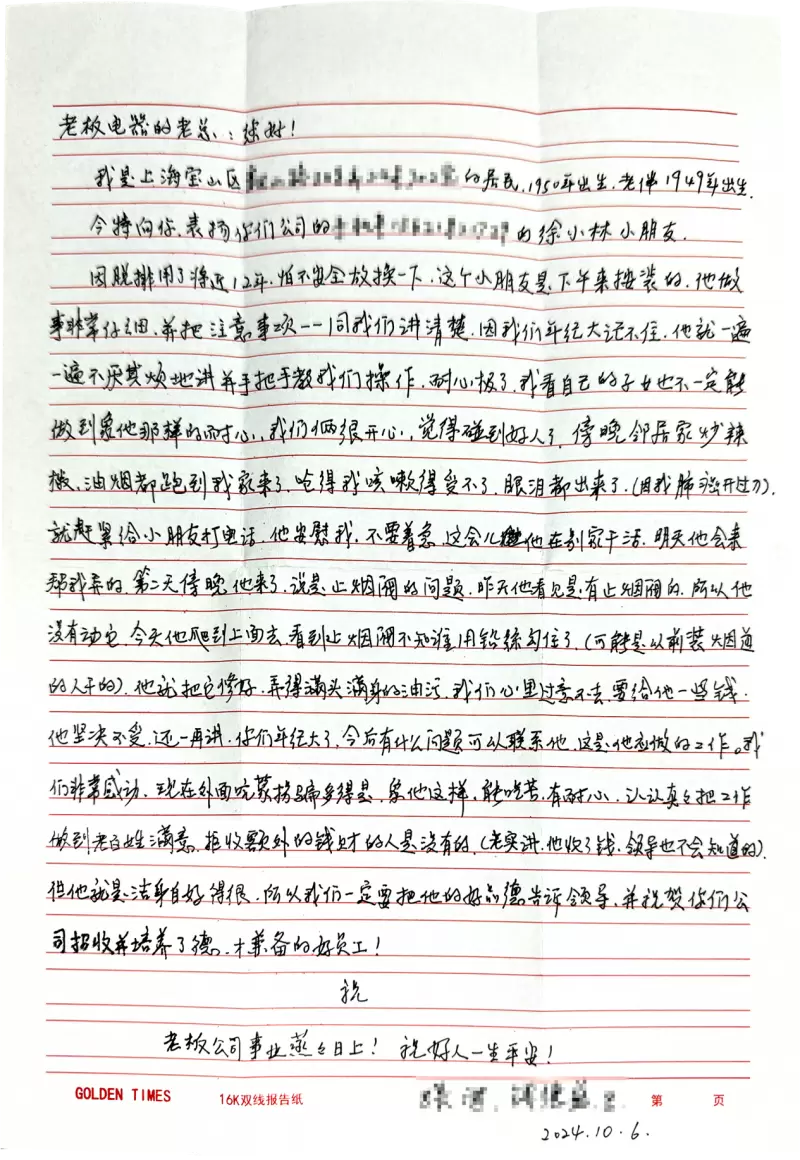 老板电器的老总:您好!
我是上海宝山区 的居民,1950年出生.老伴1949年出生.
今特向你.表扬你们公司的 的徐小林小朋友.
因脱排用了将近12年.怕不安全故换一下.这个小朋友是下午来按装的.他做
事非常仔细.并把注意事项一一同我们讲清楚.因我们年纪大记不住.他就一遍
一遍不厌其烦地讲并手把手教我们操作.耐心极了.我看自己的子女也不一定能
做到象他那样的耐心.我们俩很开心.觉得碰到好人了.傍晚邻居家炒辣
椒、油烟都跑到我家来了.呛得我咳嗽得受不了.眼泪都出来了.(因我肺癌开过刀).
就赶紧给小朋友打电话.他安慰我.不要着急.这会儿他在别家干活.明天他会来
帮我弄的.第二天傍晚他来了.说是止烟阀的问题.昨天他看见是有止烟阀的.所以他
没有动它.今天他爬到上面去.看到止烟阀不知谁用铅练勾住了.(可能是以前装烟道
的人干的).他就把它修好.弄得满头满身的油污.我们心里过意不去.要给他一些钱.
他坚决不受.还一再讲.你们年纪大了.今后有什么问题可以联系他.这是他应做的工作。我
们非常感动.现在外面坑蒙拐骗多得是.象他这样.能吃苦.有耐心.认认真々把工作
做到老百姓满意.拒收额外的钱财的人是没有的.(老实讲.他收了钱.领导也不会知道的).
但他就是洁身自好得很.所以我们一定要把他的好品德告诉领导.并祝贺你们公
司招收并培养了德.才兼备的好员工!
祝
老板公司事业蒸々日上!祝好人一生平安!
GOLDEN TIMES 16K双线报告纸 第 页
2024.10.6.